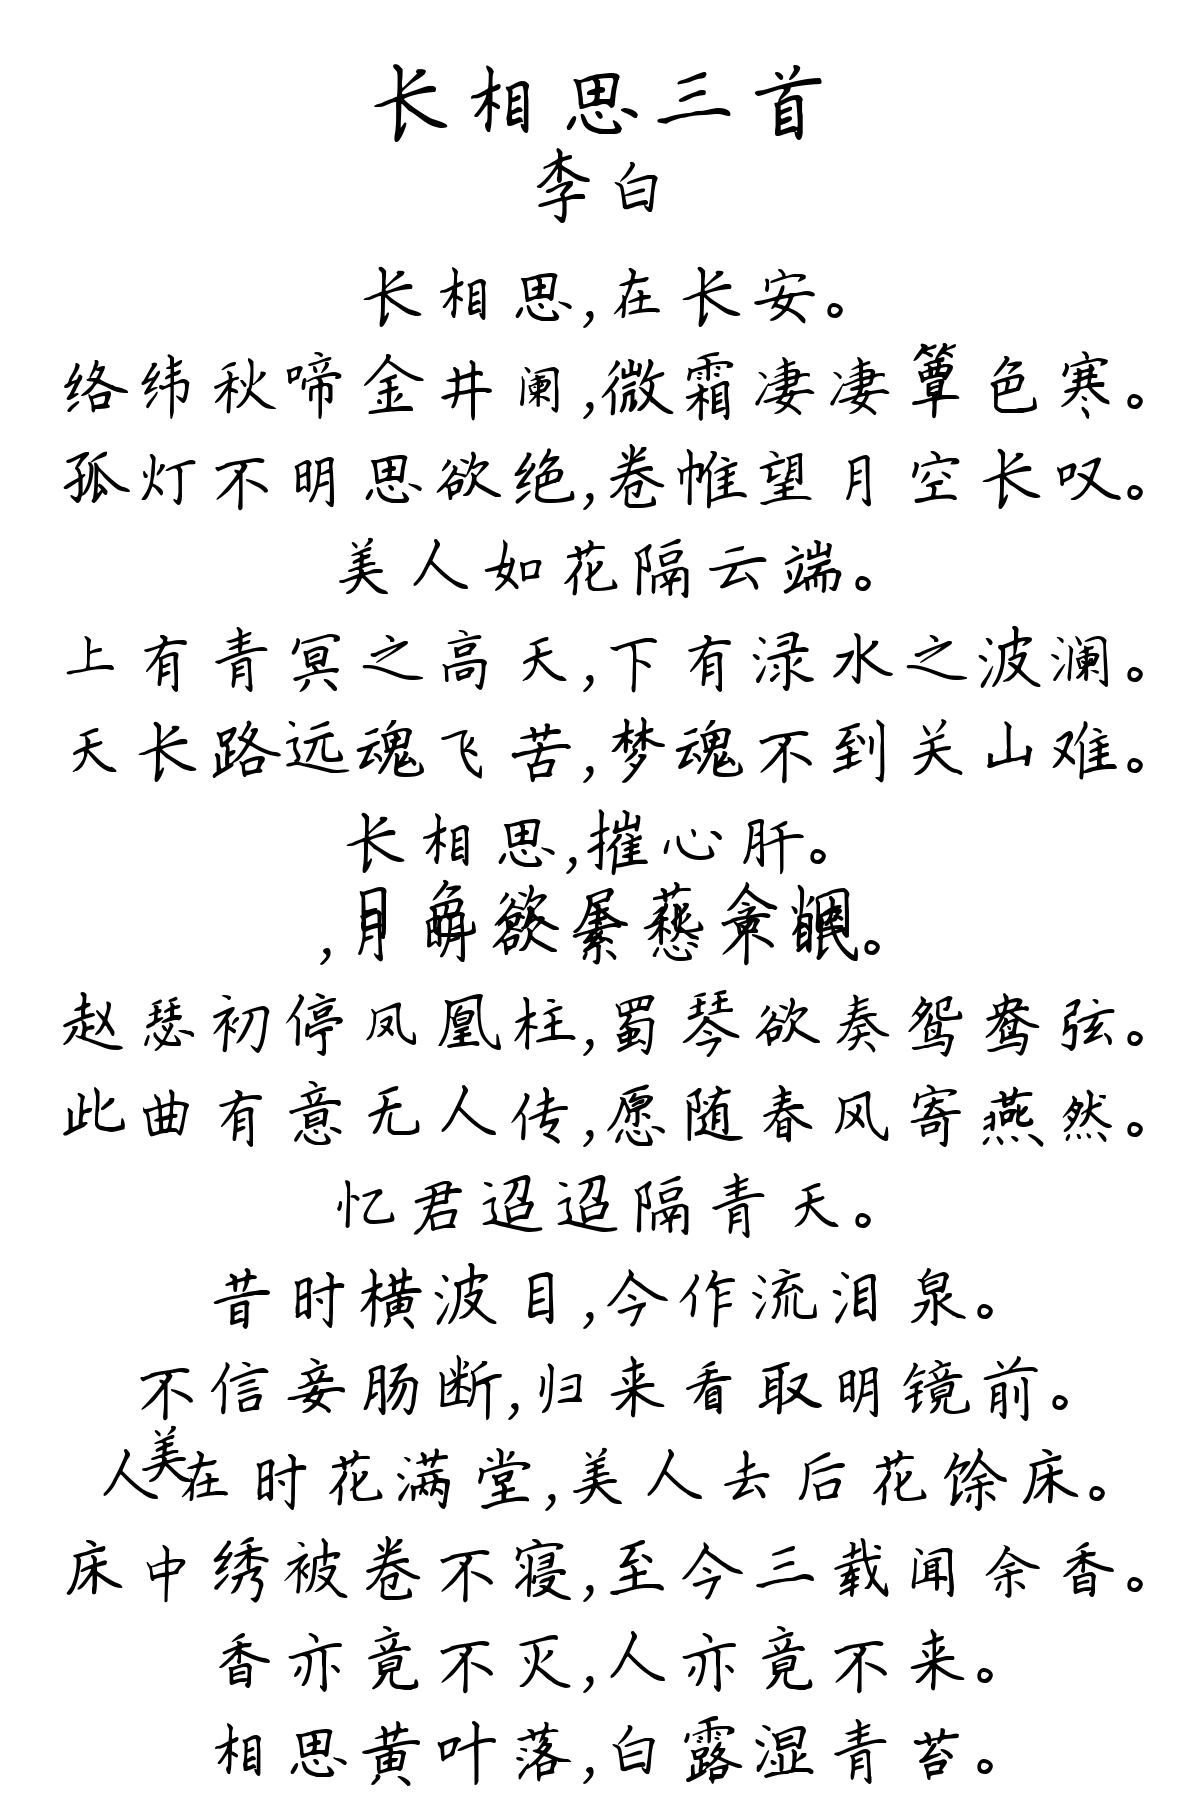 长相思三首
李白
长相思,在长安。
络纬秋啼金井阑,微霜凄凄簟色寒。
孤灯不明思欲绝,卷帷望月空长叹。
美人如花隔云端。
上有青冥之高天,下有渌水之波澜。
天长路远魂飞苦,梦魂不到关山难。
长相思,摧心肝。
日色欲尽花含烟,月明欲素愁不眠。
赵瑟初停凤凰柱,蜀琴欲奏鸳鸯弦。
此曲有意无人传,愿随春风寄燕然。
忆君迢迢隔青天。
昔时横波目,今作流泪泉。
不信妾肠断,归来看取明镜前。
人美在时花满堂,美人去后花馀床。
床中绣被卷不寝,至今三载闻余香。
香亦竟不灭,人亦竟不来。
相思黄叶落,白露湿青苔。